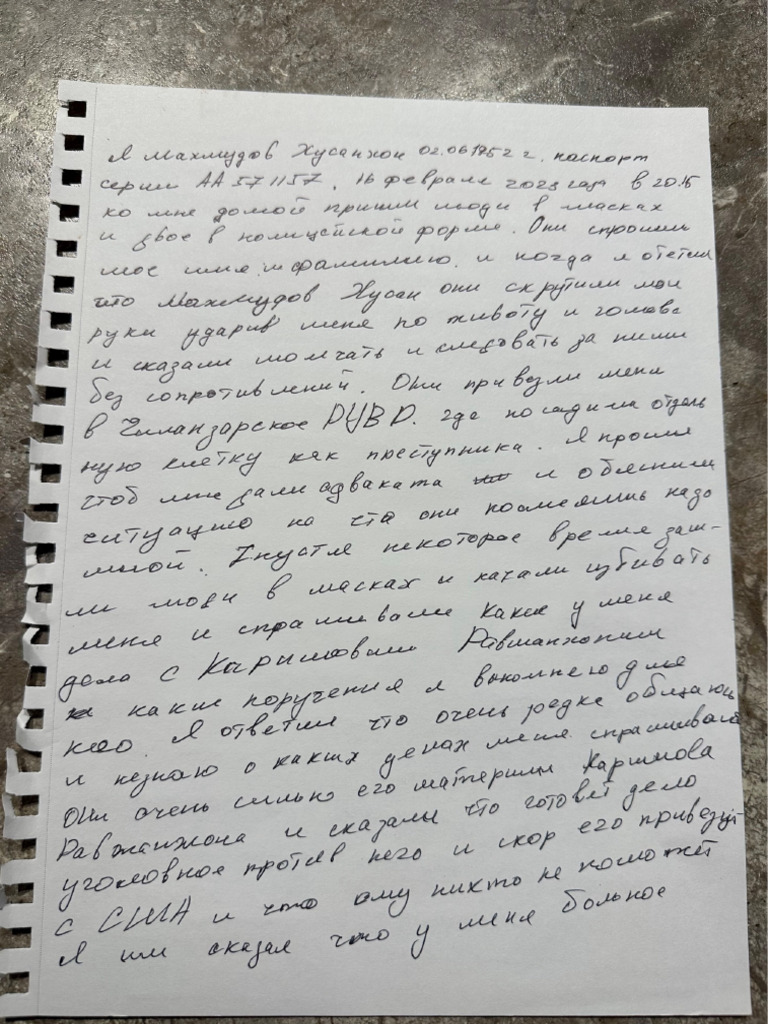 Я Махмудов Хусанхон 02.061952 г. паспорт
серии АА 5711157, 16 февраля 2023 года в 20.15
ко мне домой пришли люди в масках
и двое в полицейской форме. Они спросили
мое имя и фамилию. и когда я ответил
что Махмудов Хусан они скрутили мои
руки ударив меня по животу и голове
и сказали молчать и следовать за ними
без сопротивлений. Они привезли меня
в Чиланзарское РУВД. где посадили отдель
ную клетку как преступника. Я просил
чтоб мне дали адваката и обяснили
ситуацию на что они посмеялись надо
мной. Спустя некоторое время заш-
ли люди в масках и начали избивать
меня и спрашивали какие у меня
дела с Каримовым Равшанхоном
какие поручения я выполнею для
него. Я ответил что очень редко общаюсь
и незнаю о каких делах меня спрашивают
Они очень сильно его материли Каримова
Равжанхона и сказалы что готовят дело
уголовное против него и скор его привезут
с США и что ому никто не поможет
Я им сказал что у меня больное